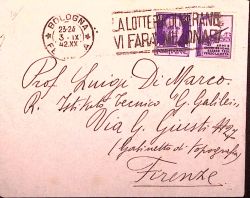 BOLOGNA
23-24
3 - IX
42.XX
LA LOTTERIA DI MERANO
VI FARÀ MILIONARI
Prof. Luigi Di Marco.
R. Istituto Tecnico G. Galilei,
Via G. Giusti
(Gabinetto di Topografia)
Firenze